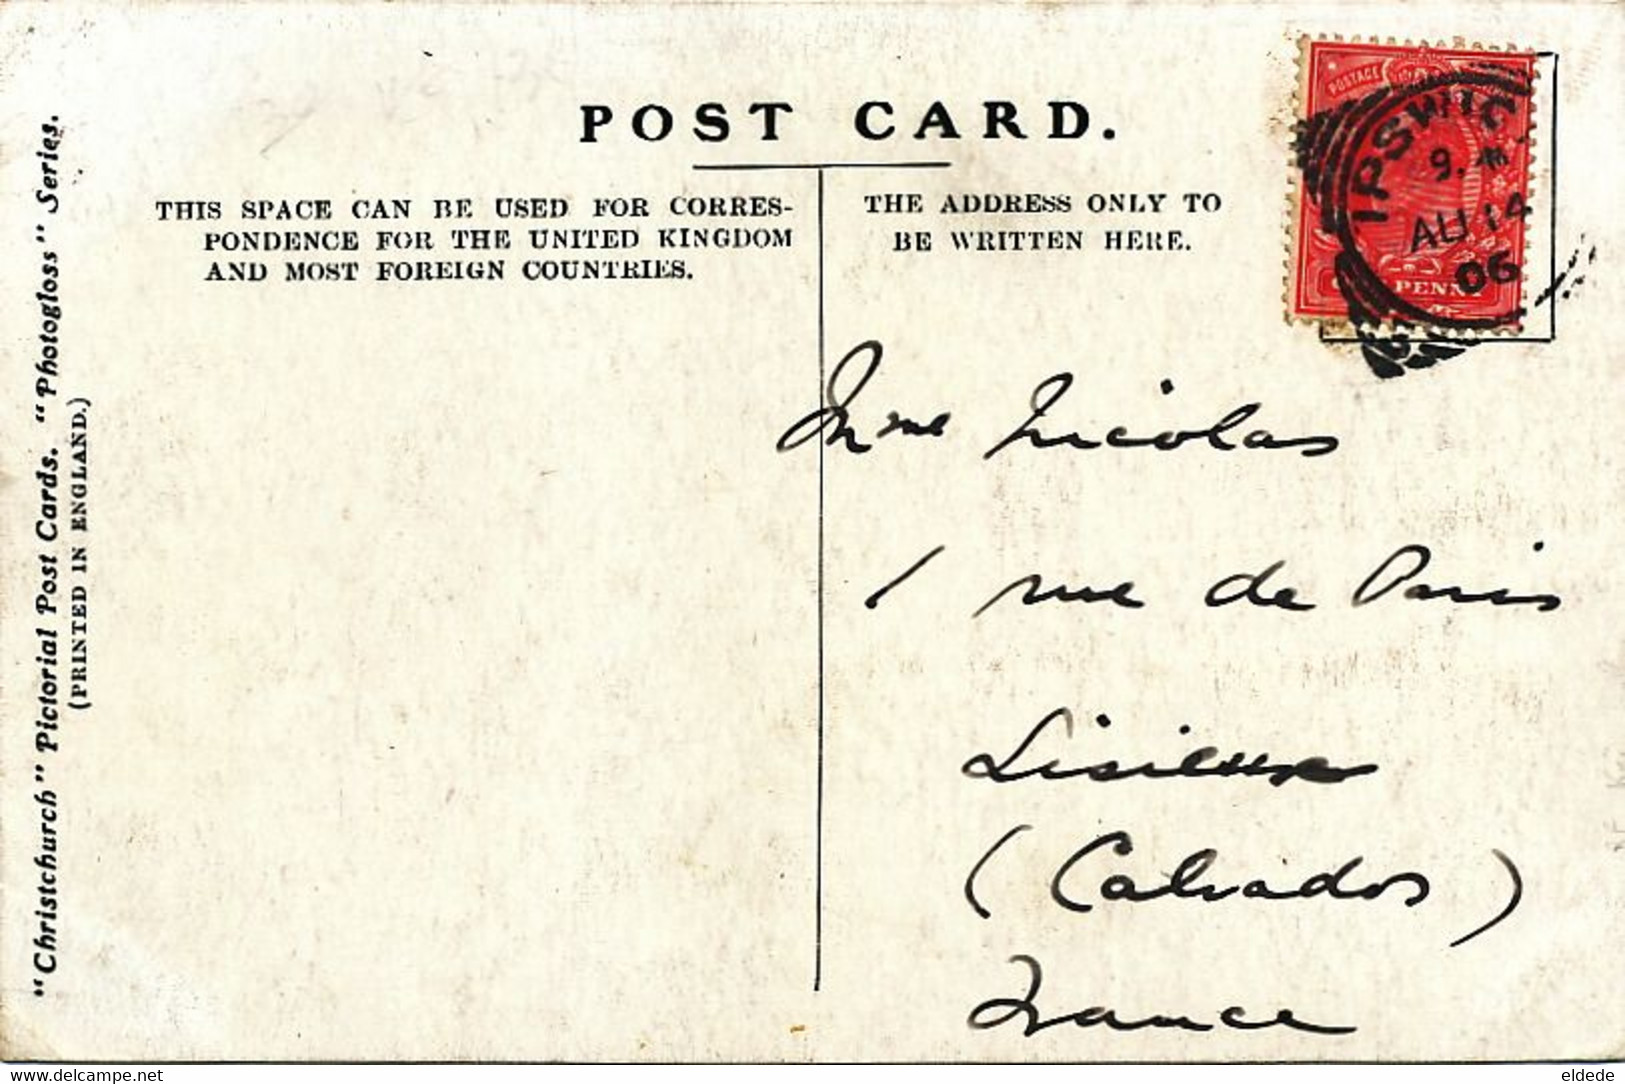 POST CARD.
THIS SPACE CAN BE USED FOR CORRES-
PONDENCE FOR THE UNITED KINGDOM
AND MOST FOREIGN COUNTRIES.
THE ADDRESS ONLY TO
BE WRITTEN HERE.
POSTAGE
PENNY
IPSWIC
9.
AU 14
06
Mme Nicolas
1 rue de Paris
Lisieux
(Calvados)
France
"Christchurch" Pictorial Post Cards. "Photogloss" Series.
(PRINTED IN ENGLAND.)
www.delcampe.net
eldede